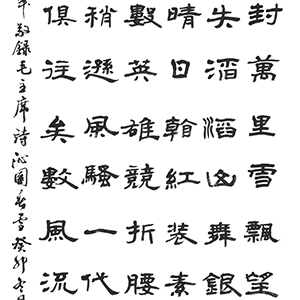 封萬里雪飄望
失滔滔山舞銀
晴日看紅裝素
數英雄競折腰
稍遜風騷一代
俱往矣數風流
敬錄毛主席詩沁園春雪癸卯冬月